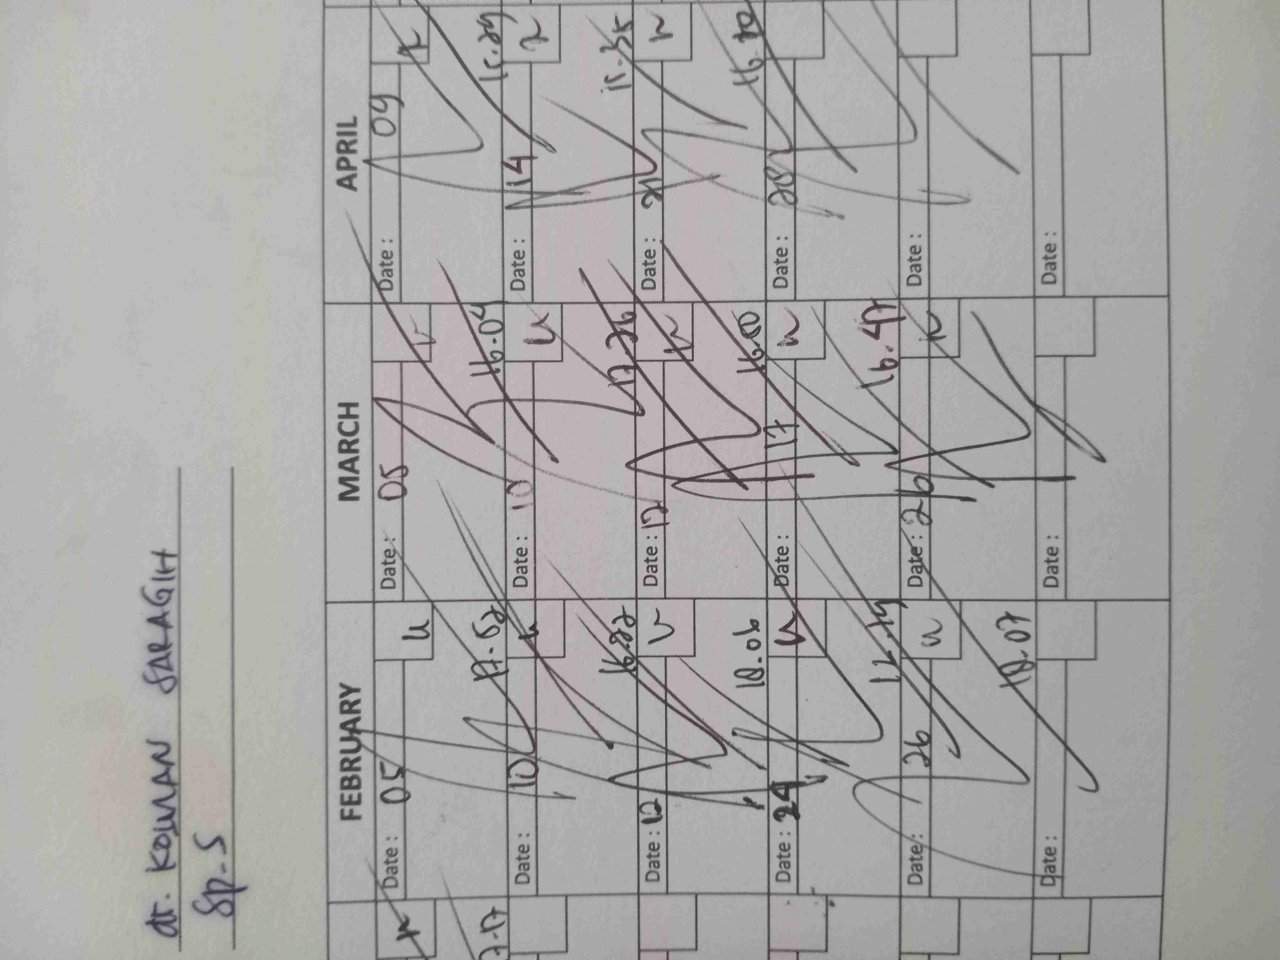 dr. KOMAN SARAGIH
Sp.S
FEBRUARY MARCH APRIL
Date : 05 Date : 05 Date : 09
17.52 16.04 15.29
Date : 10 Date : 10 Date : 14
16.22 17.26 15.35
Date : 12 Date : 12 Date : 21
18.06 16.00 16.20
Date : 24 Date : 17 Date : 28
17.19 16.47
Date : 26 Date : 26 Date :
18.07
Date : Date : Date :